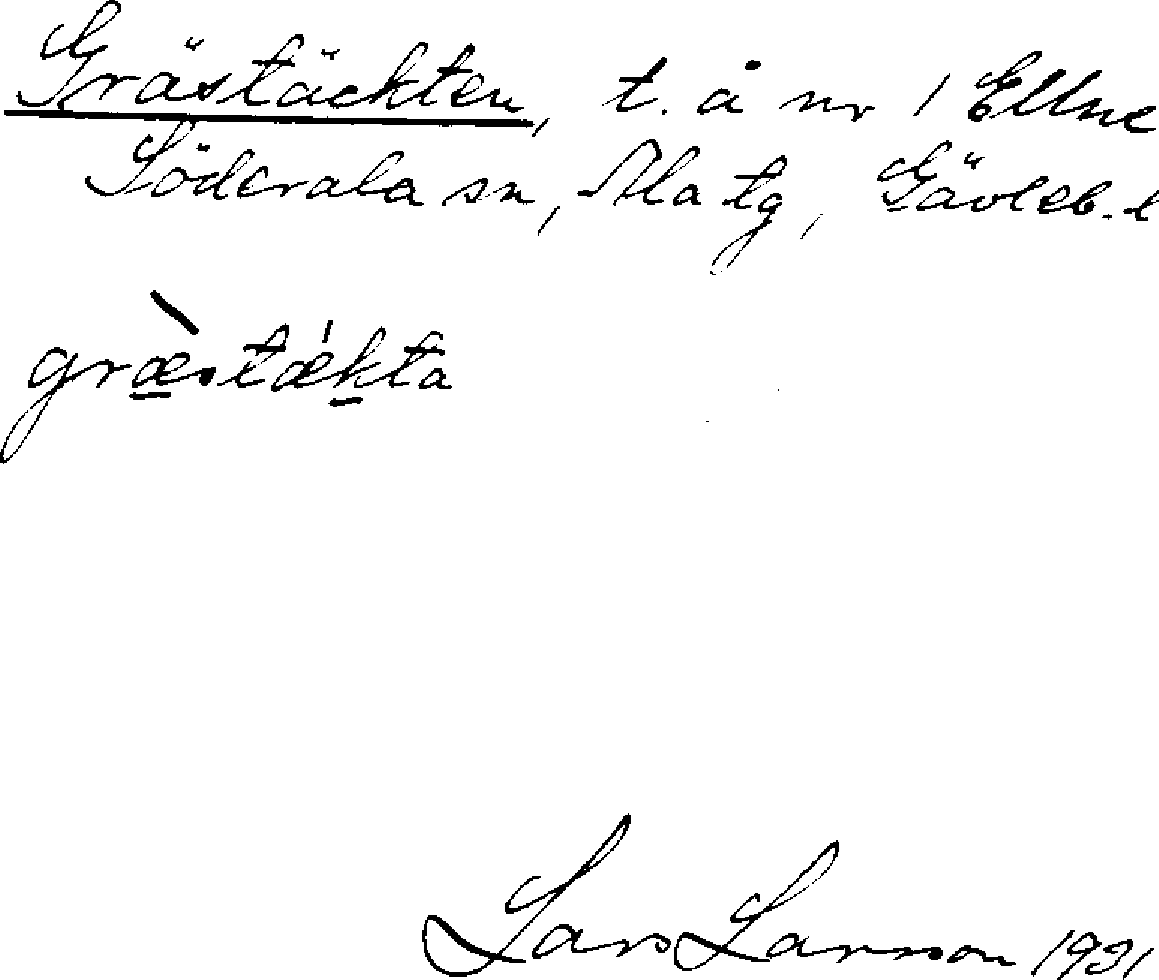 Grästäckten, t. å nr 1 Ellne
Söderala sn, Ala tg, Gävleb. l
græstækta
Lars Larsson 1931